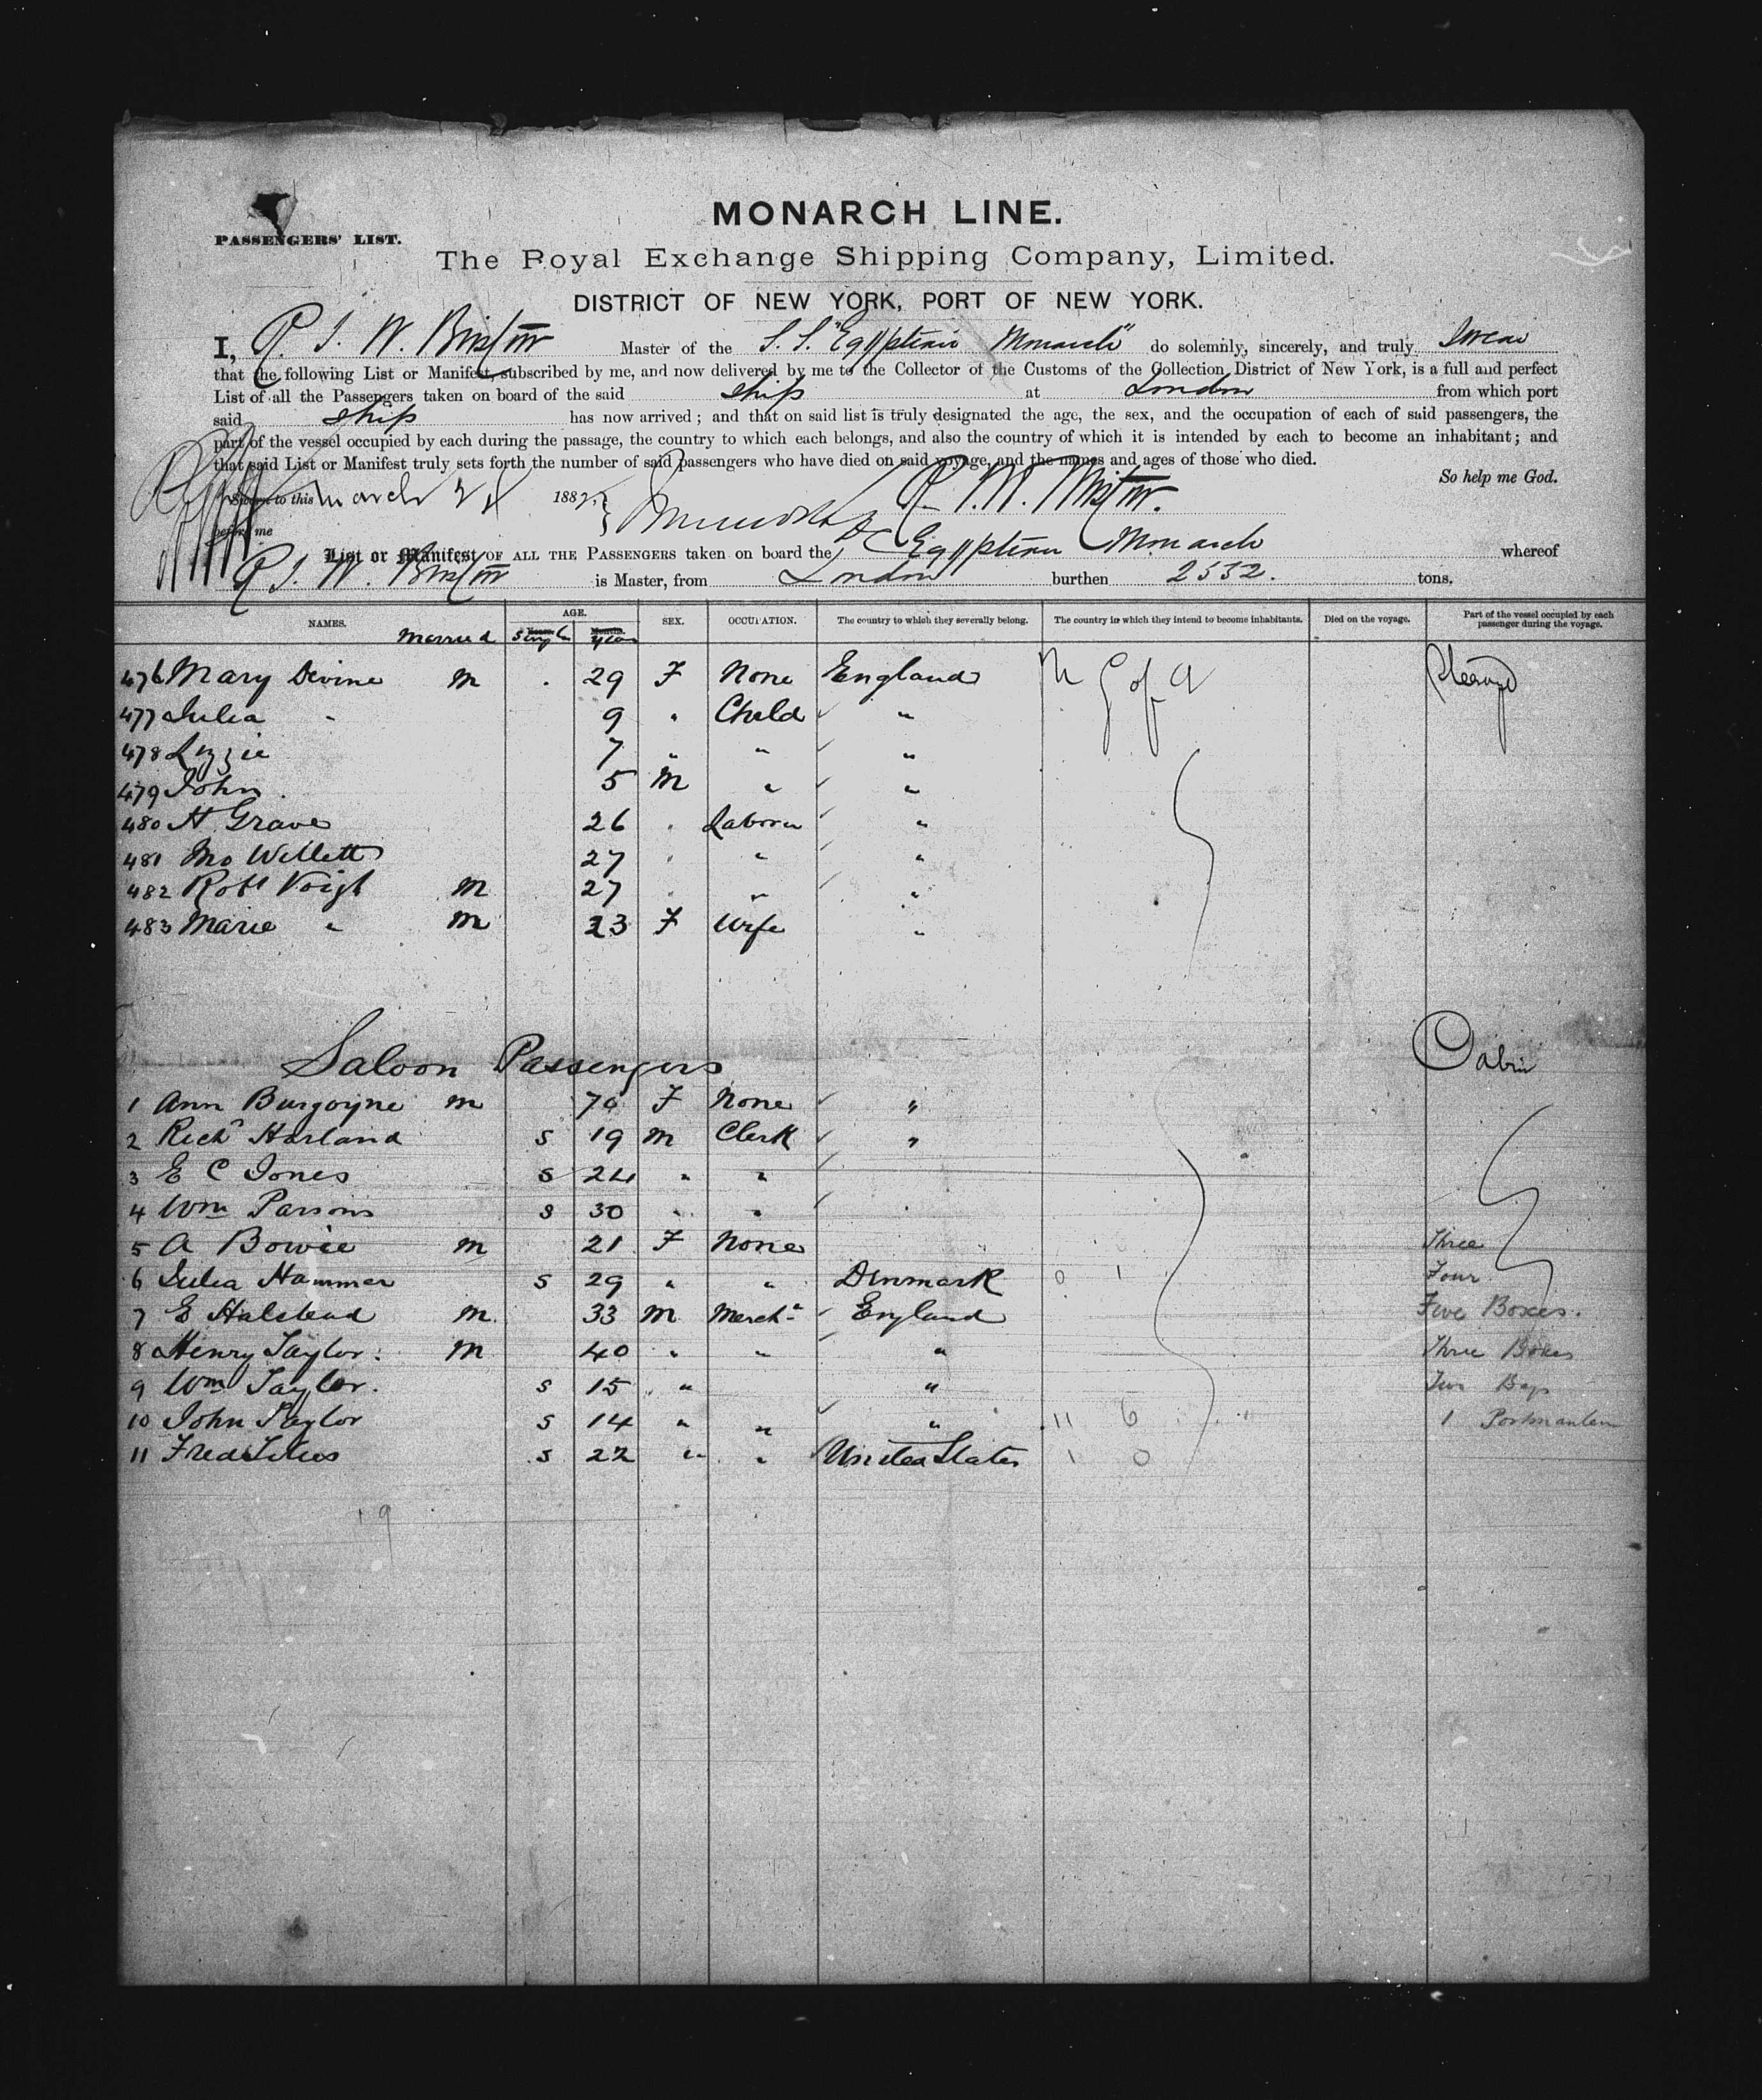 PASSENGERS' LIST.
MONARCH LINE.
The Royal Exchange Shipping Company, Limited.
DISTRICT OF NEW YORK, PORT OF NEW YORK.
I, R. J. W. Bristow Master of the S. S. "Egyptian Monarch" do solemnly, sincerely, and truly swear
that the following List or Manifest, subscribed by me, and now delivered by me to the Collector of the Customs of the Collection District of New York, is a full and perfect
List of all the Passengers taken on board of the said ship at London from which port
said ship has now arrived; and that on said list is truly designated the age, the sex, and the occupation of each of said passengers, the
part of the vessel occupied by each during the passage, the country to which each belongs, and also the country of which it is intended by each to become an inhabitant; and
that said List or Manifest truly sets forth the number of said passengers who have died on said voyage, and the names and ages of those who died.
So help me God.
Sworn to this March 188
before me
List or Manifest OF ALL THE PASSENGERS taken on board the Egyptian Monarch whereof
R J. W. Bristow is Master, from London burthen tons.
NAMES. AGE. SEX. OCCUPATION. The country to which they severally belong. The country in which they intend to become inhabitants. Died on the voyage. Part of the vessel occupied by each passenger during the voyage.
Married Single Years
476 Mary Devine m 29 F None England Steerage
477 Julia " 9 " Child "
478 Lizzie 7 " " "
479 John 5 M " "
480 H Grave 26 " Laborer "
481 Willett 27 " " "
482 Robt Voigt M 27 " " "
483 Marie " M 23 F Wife "
Saloon Passengers Cabin
1 Ann Burgoyne m F None "
2 Richd Harland S 19 M Clerk "
3 E C Jones S 24 " "
4 Wm Parsons S 30 " "
5 A Bowie m 21 F None Three
6 Julia Hammer S 29 " " Denmark 0 1 Four
7 E Halstead M 33 M Merch England Five Boxes.
8 Henry Taylor. M 40 " " " Three Boxes
9 Wm Taylor. S 15 " " Two Bags
10 John Taylor S 14 " " " 11 6 1 Portmanteau
11 Fred S 22 " " United States 1 0
9